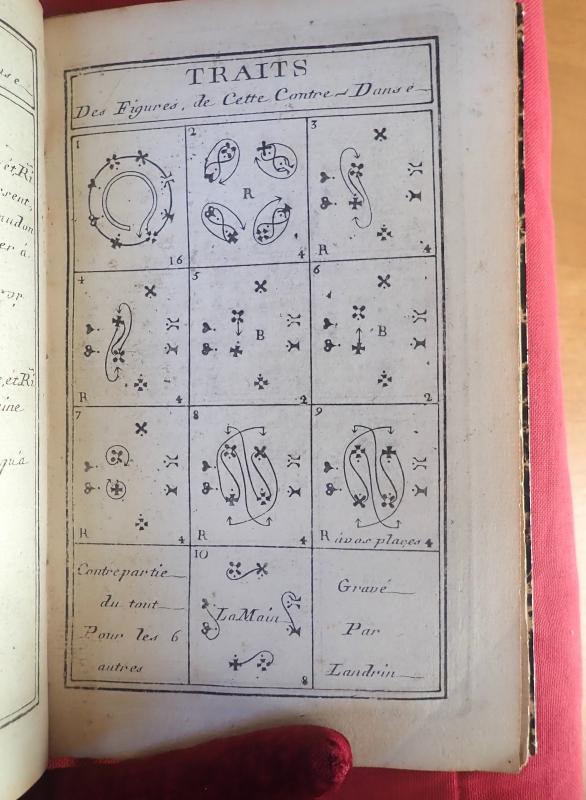 TRAITS
Des Figures, de Cette Contre-Danse
1
16
2
R
4
3
R
4
4
R
4
5
B
2
6
B
2
7
R
4
8
R
4
9
R à vos places 4
Contrepartie
du tout
Pour les 6
autres
10
La Main
8
Gravé
Par
Landrin